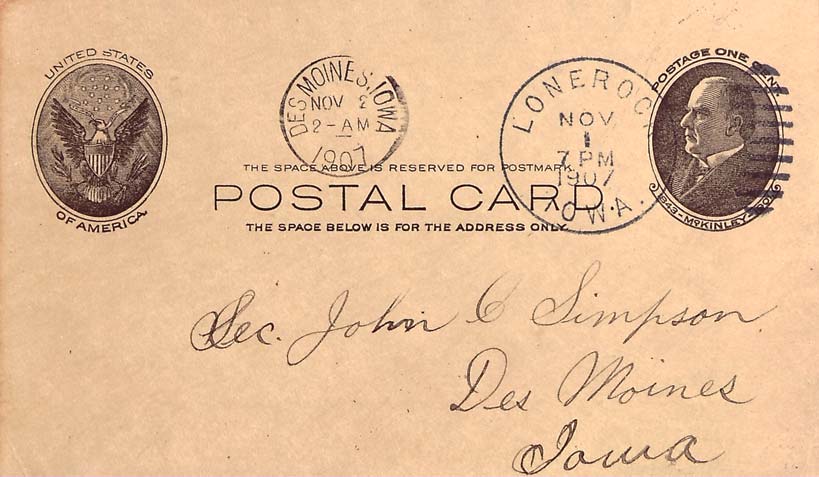 UNITED STATES
OF AMERICA.
DES MOINES, IOWA
NOV 2
2-AM
1907
LONEROCK
NOV
1
7 PM
1907
IOWA.
POSTAGE ONE CENT.
1843-McKINLEY-1901
THE SPACE ABOVE IS RESERVED FOR POSTMARK.
POSTAL CARD.
THE SPACE BELOW IS FOR THE ADDRESS ONLY.
Sec. John C Simpson
Des Moines
Iowa